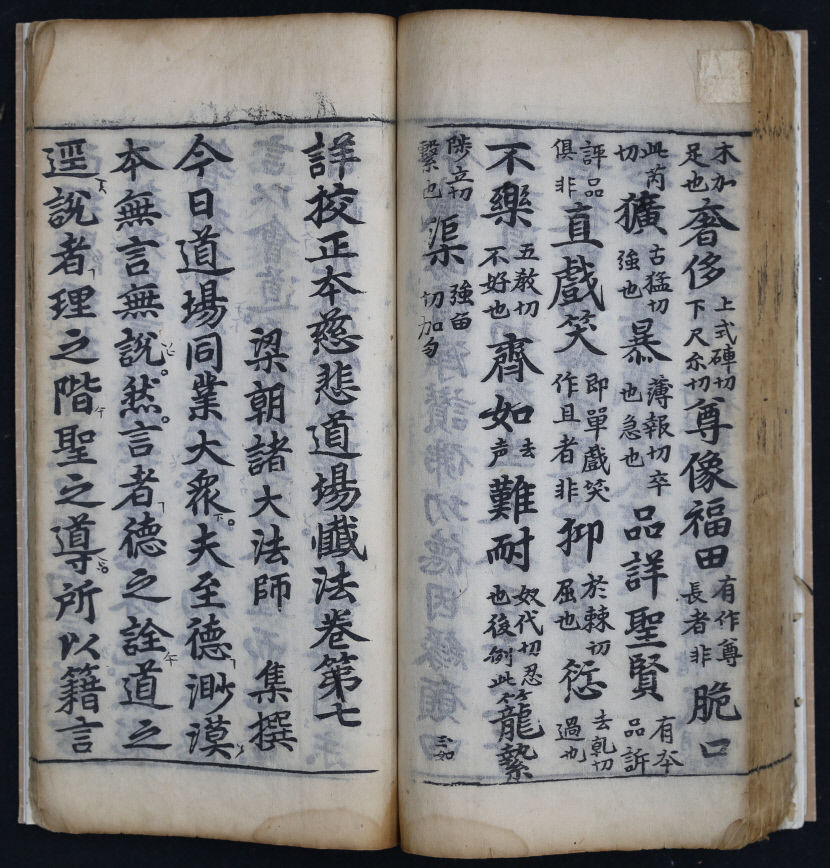 木加足也奢侈上式車切下尺尒切尊像福田有作尊長者非脆口
此芮切獷古猛切強也暴薄報切卒也急也品詳聖賢有本品訴
評品俱非直戲笑即單戲笑作且者非抑於棘切屈也愆去乾切過也
不樂五教切不好也齊如去声難耐奴代切忍也後例此籠縶三如
陟立切繫也渠強
詳挍正本慈悲道場懺法卷第七
梁朝諸大法師集撰
今日道場同業大衆夫至德渺漠
本無言無說然言者德之詮道之
逕說者理之階聖之導所以籍言